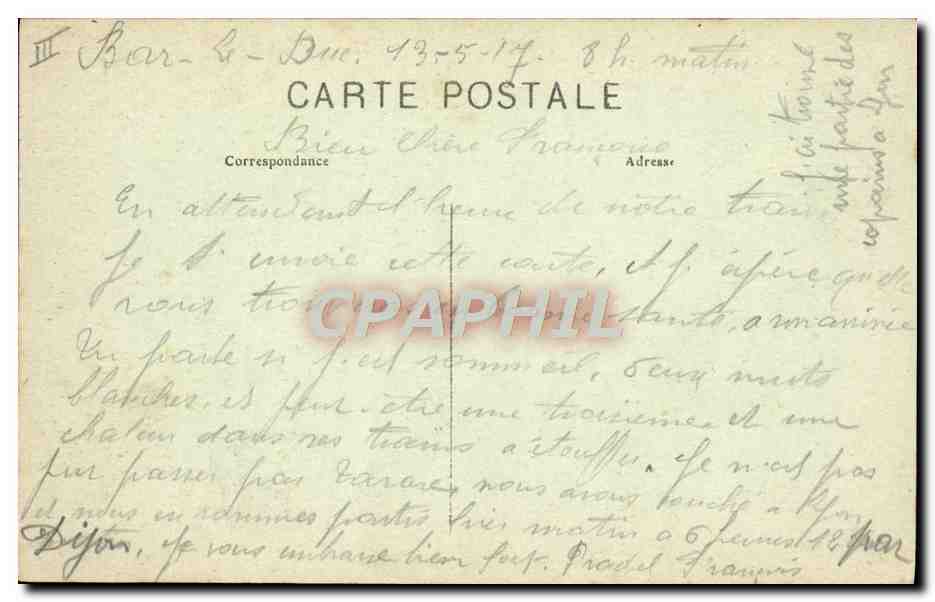 III Bar-le-Duc. 13-5-17. 8 h. matin
CARTE POSTALE
Bien chère Françoise
Correspondance
Adresse
En attendant l'heure de notre train
Je t'envoie cette carte, et j'espère qu'elle
vous trouve bonne santé, a mon arrivée
Un parle si j'ai sommeil, deux nuits
blanches, et peut-être une troisième et une
chaleur dans ces trains a étouffer. Je n'ai pas
pu passer par Tarare, nous avons couché a Lyon
et nous en sommes partis hier matin a 6 heures par
Dijon. Je vous embrasse bien fort. Pradel François
J'ai trouvé
une partie des
copains a
CPAPHIL